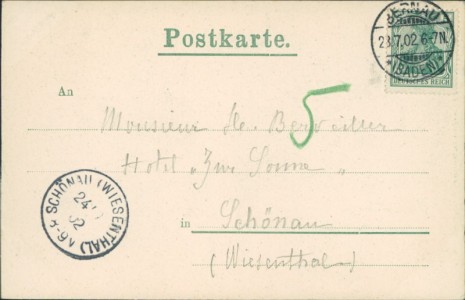 BERNAU
23.7.02.6-7N.
*(BADEN)*
DEUTSCHES REICH
Postkarte.
An
5
Monsieur
Hotel "Zur Sonne"
in Schönau
(Wiesenthal)
SCHÖNAU (WIESENTHAL)
24
02